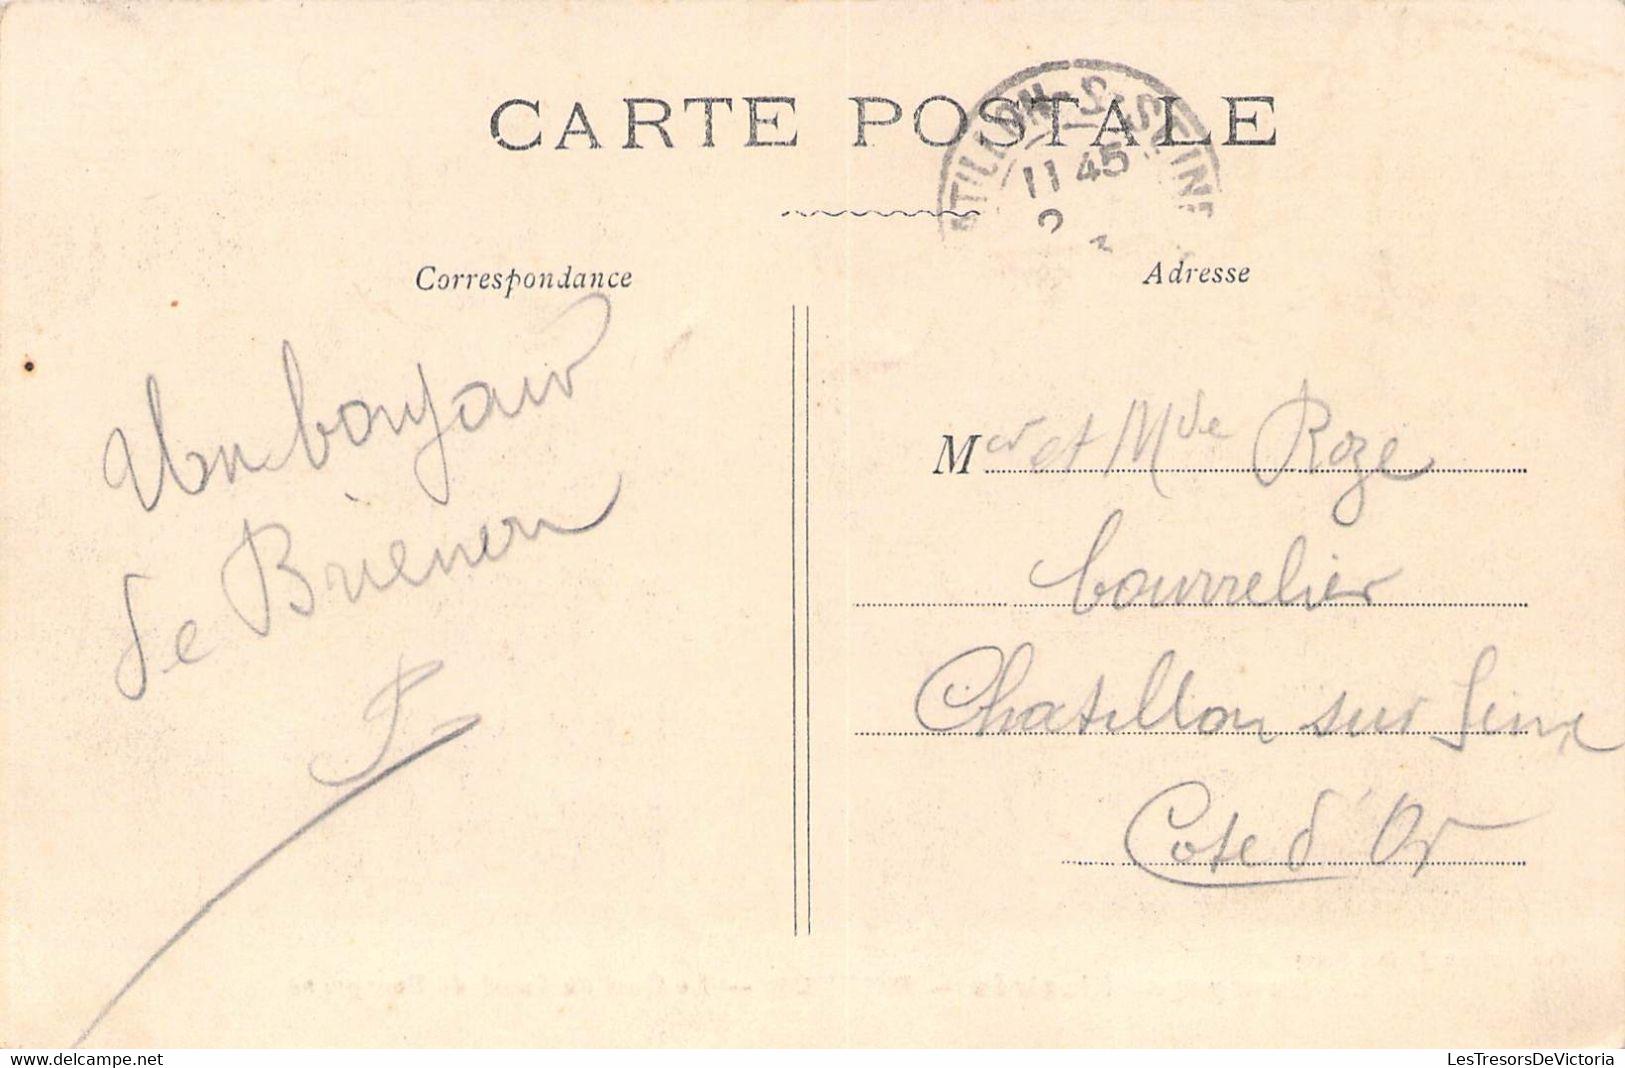 CARTE POSTALE
TILLON-S-SEINE
11 45
Correspondance
Adresse
Un bonjour
de Brienon
Mer et Mde Roze
bourrelier
Chatillon sur Seine
Cote d'Or
www.delcampe.net
LesTresorsDeVictoria